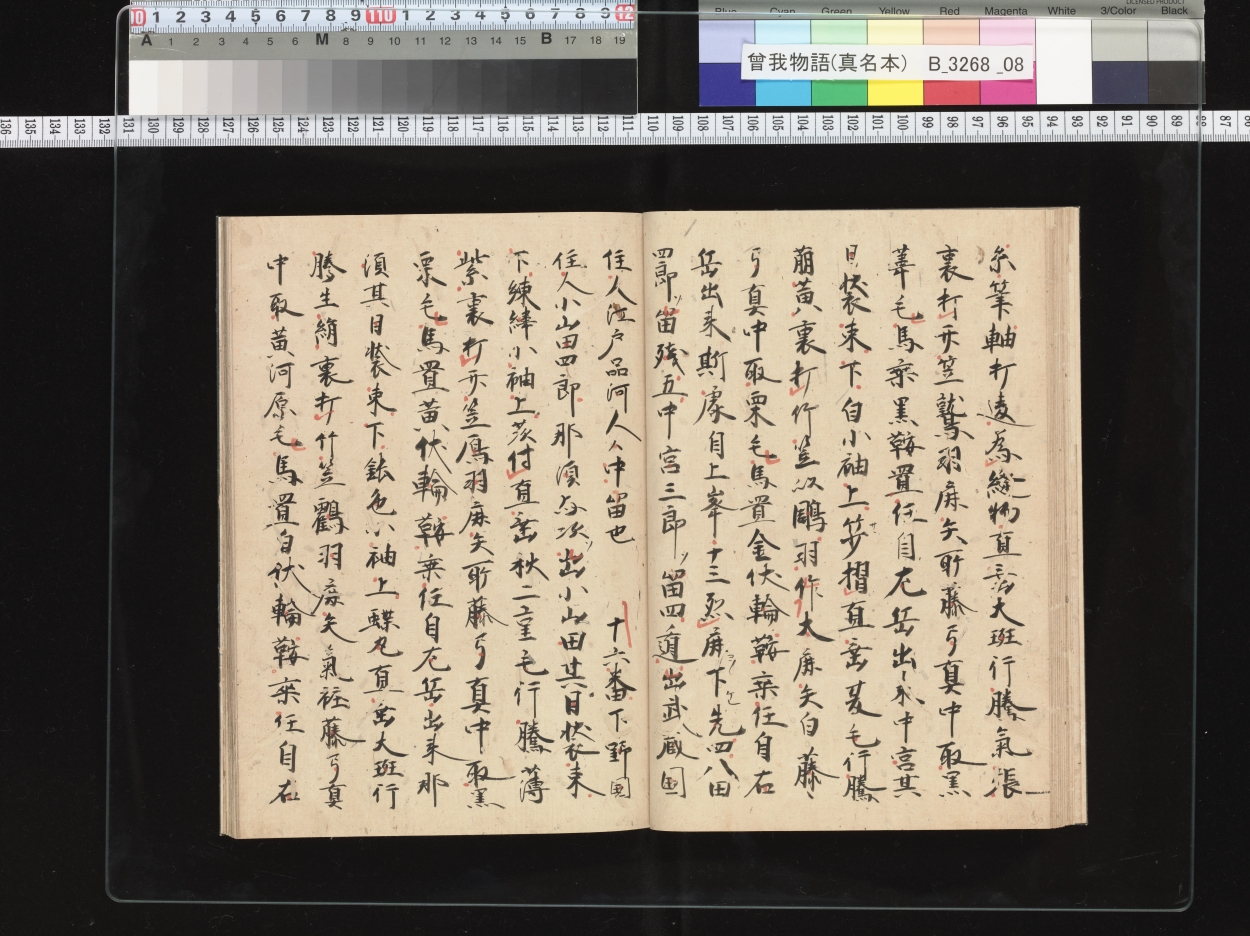 Blue Cyan Green Yellow Red Magenta White 3/Color Black
曾我物語(真名本) B_3268_08
糸筆軸打違為縫物直垂大班行騰氣張
裏打竹笠鷲羽鹿矢所藤弓真中取黒
葦毛馬乗黒鞍置任自左岳出来中宮其
日装束下白小袖上笋摺直垂夏毛行騰
萌黄裏打竹笠以鵰羽作大鹿矢白藤
弓真中取栗毛馬置金伏輪鞍乗任自右
岳出来斯處自上峯十三烈鹿下先四八田
四郎留残五中宮三郎留四逈出武蔵国
住人江戸品河人人中留也 十六番下野国
住人小山田四郎那須与次出小山田其日装束
下練絳小袖上茨付直垂秋二重毛行騰薄
紫裏打竹笠鴈羽鹿矢所藤弓真中取黒
栗毛馬置黄伏輪鞍乗任自左岳出来那
須其日装束下銥色小袖上蝶丸直垂大班行
騰生絹裏打竹笠鸛羽鹿矢氣粧藤弓真
中取黄河原毛馬置白伏輪鞍乗任自右